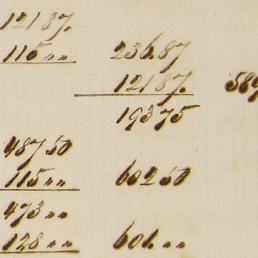 12187.
115,, 236.87
12187. 589
19375
48750
115,, 60250
473,,
128,, 601.,,